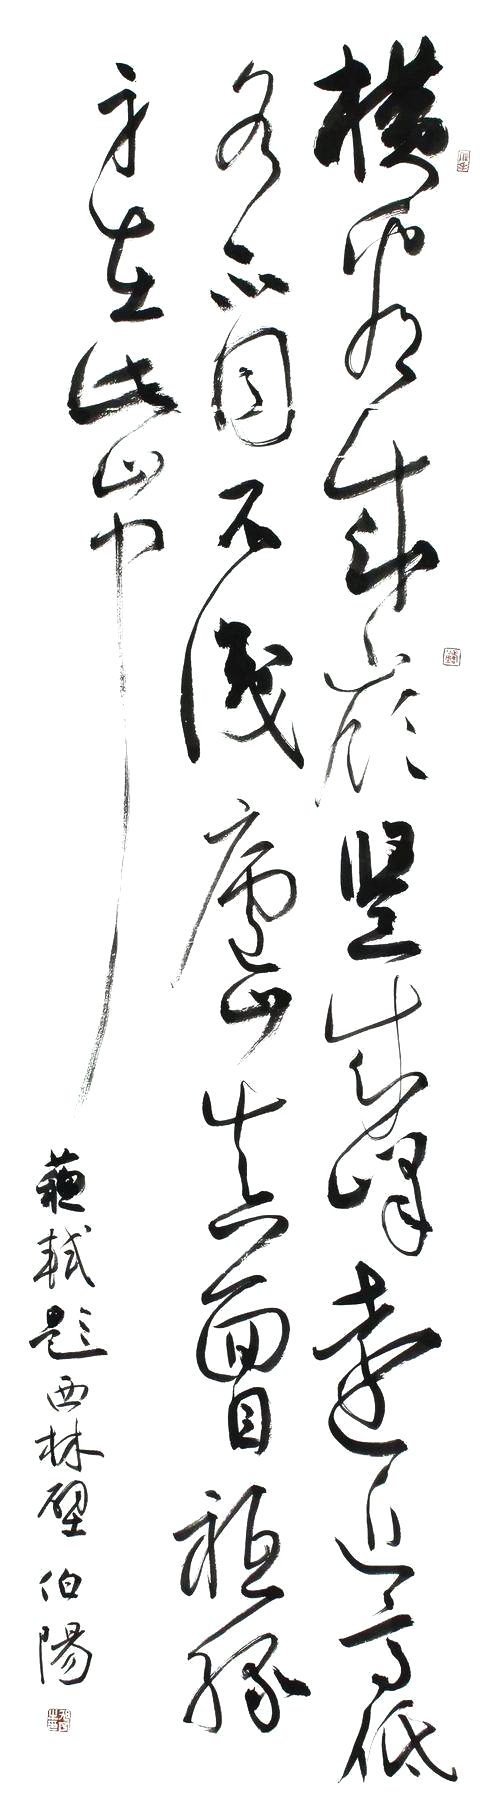 横看成嶺豎成峰遠近高低
各不同不識廬山真面目祗緣
身在此山中
蘇軾題西林壁 伯陽